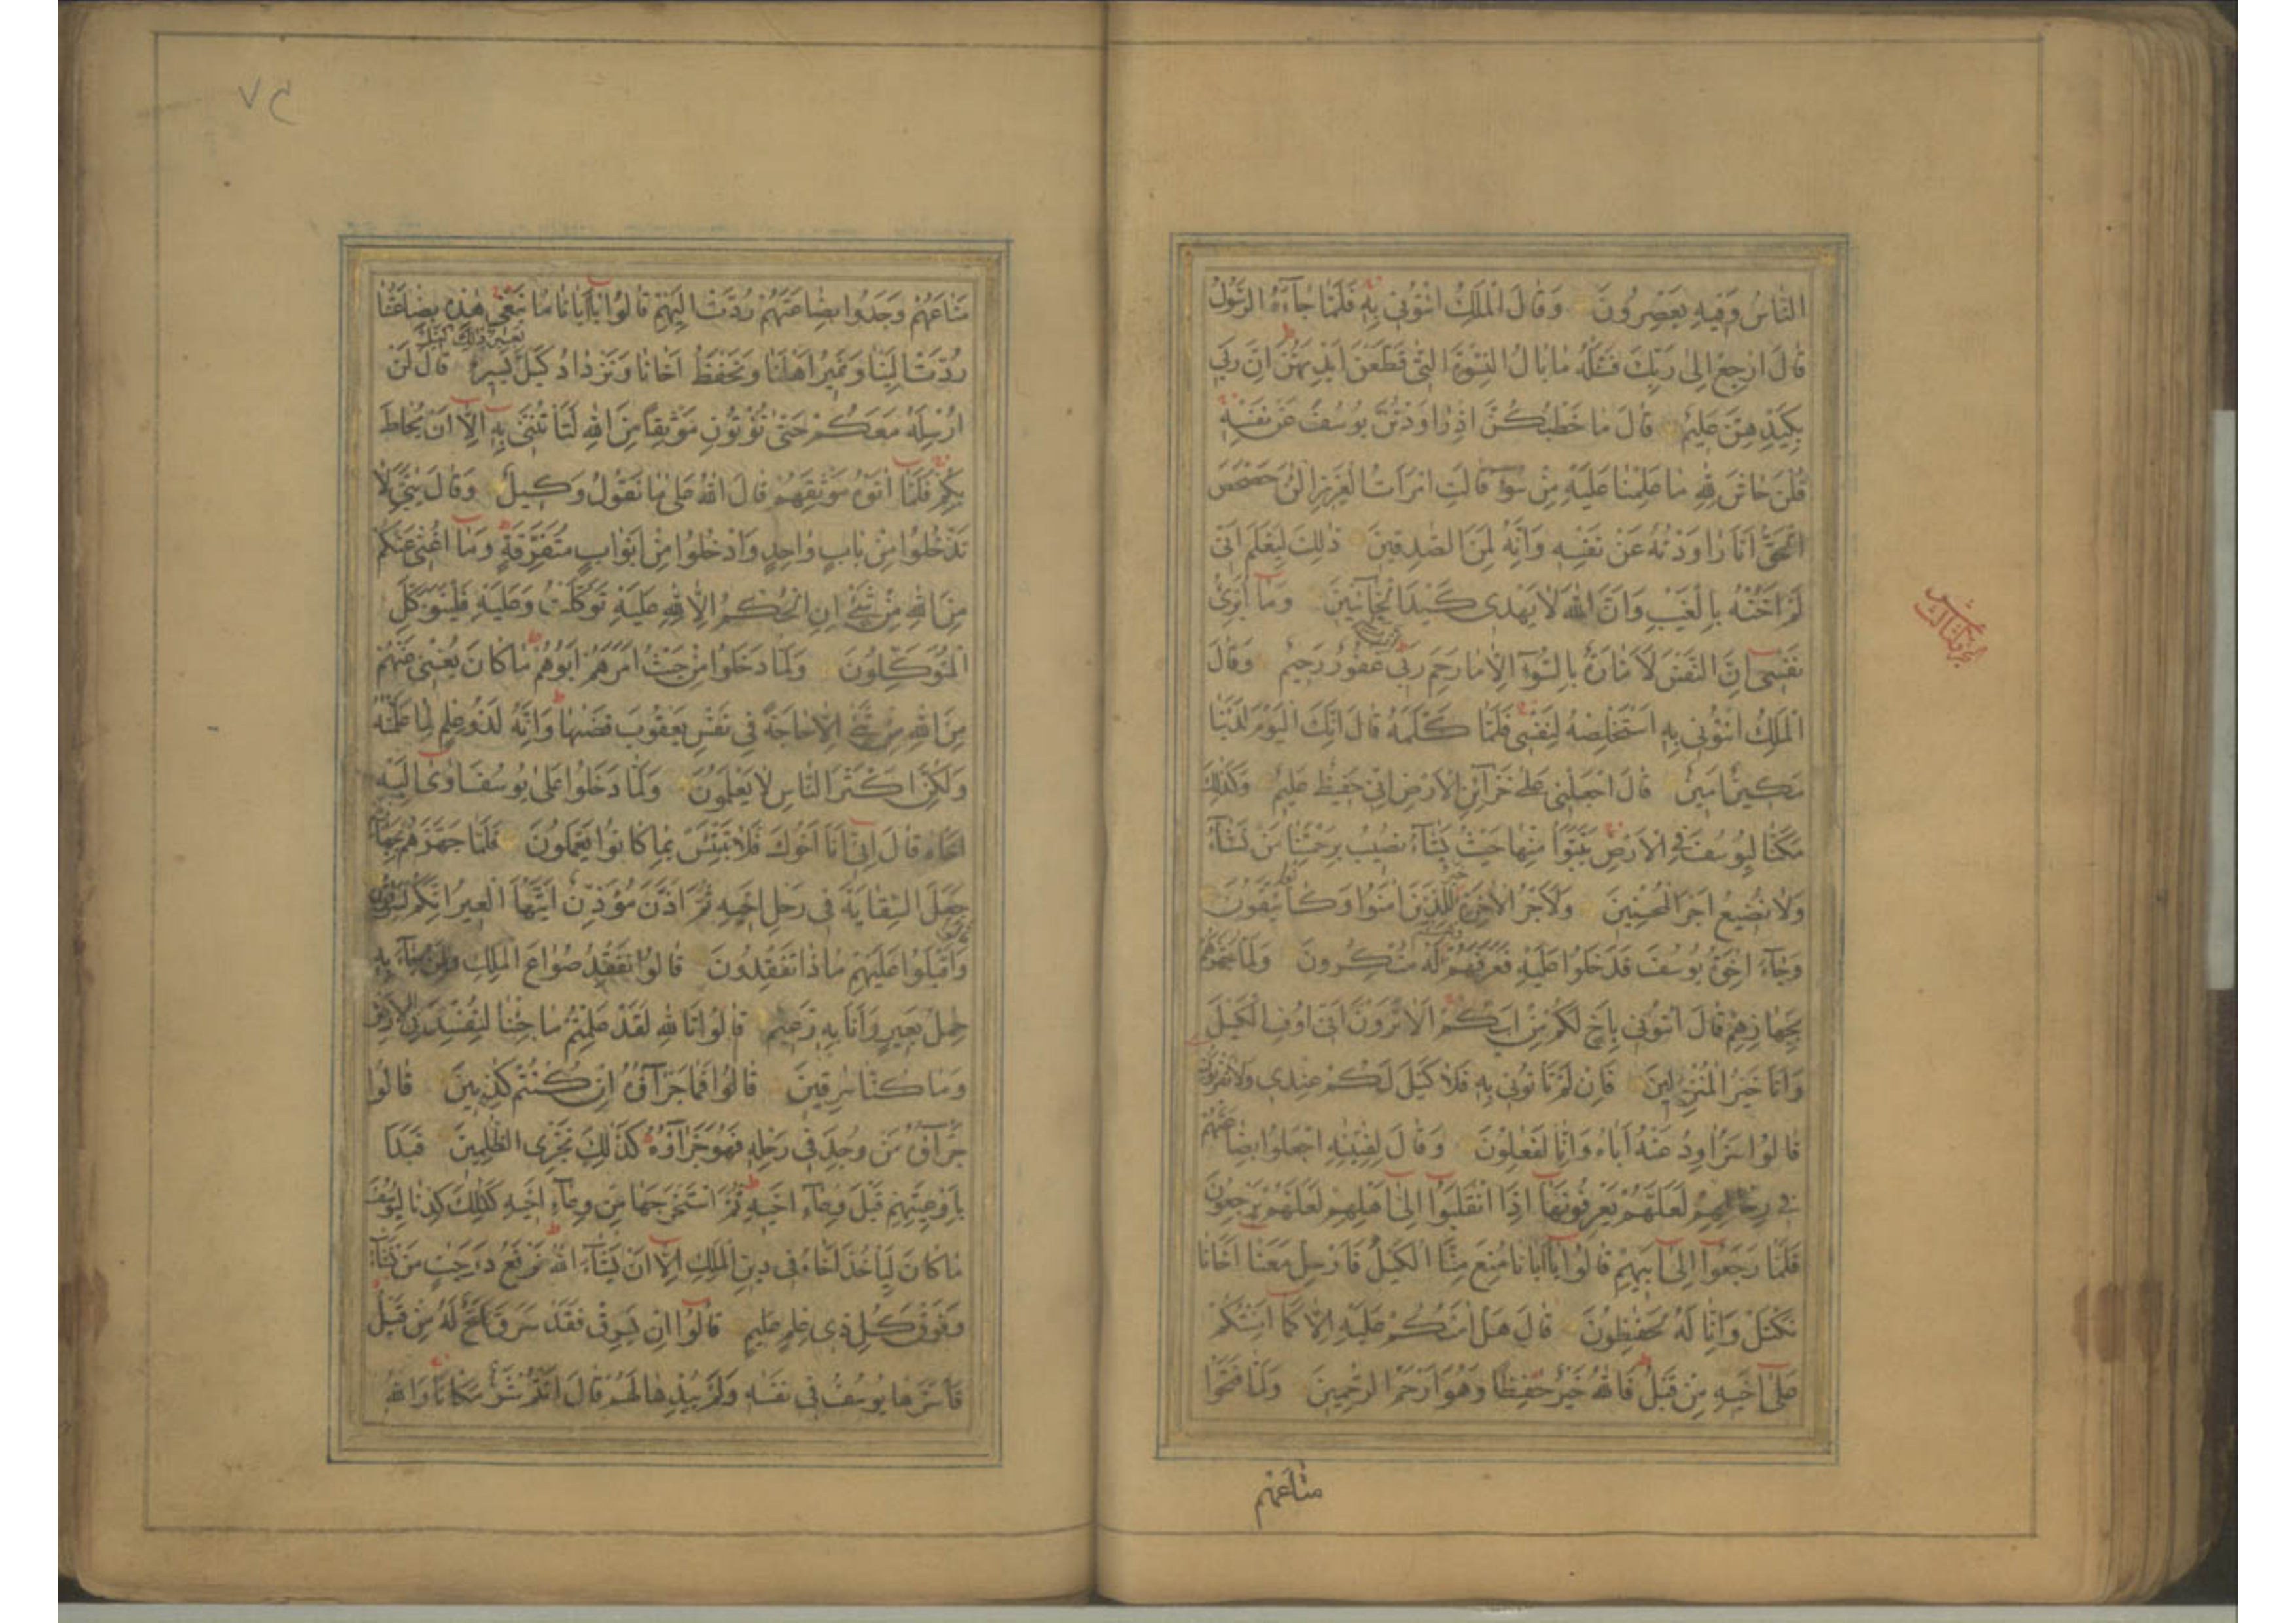 النَّاسُ وَفِيهِ يَعْصِرُونَ وَقَالَ الْمَلِكُ ائْتُونِي بِهِ فَلَمَّا جَاءَهُ الرَّسُولُ
قَالَ ارْجِعْ إِلَى رَبِّكَ فَسْئَلْهُ مَا بَالُ النِّسْوَةِ الّٰتِي قَطَّعْنَ أَيْدِيَهُنَّ إِنَّ رَبِّي
بِكَيْدِهِنَّ عَلِيمٌ قَالَ مَا خَطْبُكُنَّ إِذْ رَاوَدْتُنَّ يُوسُفَ عَنْ نَفْسِهِ
قُلْنَ حَاشَ لِلّٰهِ مَا عَلِمْنَا عَلَيْهِ مِنْ سُوءٍ قَالَتِ امْرَأَتُ الْعَزِيزِ الْـٰٔنَ حَصْحَصَ
الْحَقُّ أَنَا رَاوَدْتُهُ عَنْ نَفْسِهِ وَإِنَّهُ لَمِنَ الصّٰدِقِينَ ذٰلِكَ لِيَعْلَمَ أَنِّي
لَمْ أَخُنْهُ بِالْغَيْبِ وَأَنَّ اللّٰهَ لَا يَهْدِي كَيْدَ الْخَائِنِينَ وَمَا أُبَرِّئُ
نَفْسِي إِنَّ النَّفْسَ لَأَمَّارَةٌ بِالسُّوءِ إِلَّا مَا رَحِمَ رَبِّي إِنَّ رَبِّي غَفُورٌ رَحِيمٌ وَقَالَ
الْمَلِكُ ائْتُونِي بِهِ أَسْتَخْلِصْهُ لِنَفْسِي فَلَمَّا كَلَّمَهُ قَالَ إِنَّكَ الْيَوْمَ لَدَيْنَا
مَكِينٌ أَمِينٌ قَالَ اجْعَلْنِي عَلَى خَزَائِنِ الْأَرْضِ إِنِّي حَفِيظٌ عَلِيمٌ وَكَذٰلِكَ
مَكَّنَّا لِيُوسُفَ فِي الْأَرْضِ يَتَبَوَّأُ مِنْهَا حَيْثُ يَشَاءُ نُصِيبُ بِرَحْمَتِنَا مَنْ نَشَاءُ
وَلَا نُضِيعُ أَجْرَ الْمُحْسِنِينَ وَلَأَجْرُ الْآخِرَةِ خَيْرٌ لِلَّذِينَ آمَنُوا وَكَانُوا يَتَّقُونَ
وَجَاءَ إِخْوَةُ يُوسُفَ فَدَخَلُوا عَلَيْهِ فَعَرَفَهُمْ وَهُمْ لَهُ مُنْكِرُونَ وَلَمَّا جَهَّزَهُمْ
بِجَهَازِهِمْ قَالَ ائْتُونِي بِأَخٍ لَكُمْ مِنْ أَبِيكُمْ أَلَا تَرَوْنَ أَنِّي أُوفِي الْكَيْلَ
وَأَنَا خَيْرُ الْمُنْزِلِينَ فَإِنْ لَمْ تَأْتُونِي بِهِ فَلَا كَيْلَ لَكُمْ عِنْدِي وَلَا تَقْرَبُونِ
قَالُوا سَنُرَاوِدُ عَنْهُ أَبَاهُ وَإِنَّا لَفٰعِلُونَ وَقَالَ لِفِتْيٰنِهِ اجْعَلُوا بِضَاعَتَهُمْ
فِي رِحَالِهِمْ لَعَلَّهُمْ يَعْرِفُونَهَا إِذَا انْقَلَبُوا إِلَى أَهْلِهِمْ لَعَلَّهُمْ يَرْجِعُونَ
فَلَمَّا رَجَعُوا إِلَى أَبِيهِمْ قَالُوا يَا أَبَانَا مُنِعَ مِنَّا الْكَيْلُ فَأَرْسِلْ مَعَنَا أَخَانَا
نَكْتَلْ وَإِنَّا لَهُ لَحٰفِظُونَ قَالَ هَلْ آمَنُكُمْ عَلَيْهِ إِلَّا كَمَا أَمِنْتُكُمْ
عَلَى أَخِيهِ مِنْ قَبْلُ فَاللّٰهُ خَيْرٌ حٰفِظًا وَهُوَ أَرْحَمُ الرّٰحِمِينَ وَلَمَّا فَتَحُوا
مَتَاعَهُمْ
مَتَاعَهُمْ وَجَدُوا بِضَاعَتَهُمْ رُدَّتْ إِلَيْهِمْ قَالُوا يَا أَبَانَا مَا نَبْغِي هٰذِهِ بِضَاعَتُنَا
رُدَّتْ إِلَيْنَا وَنَمِيرُ أَهْلَنَا وَنَحْفَظُ أَخَانَا وَنَزْدَادُ كَيْلَ بَعِيرٍ ذٰلِكَ كَيْلٌ يَسِيرٌ قَالَ لَنْ
أُرْسِلَهُ مَعَكُمْ حَتَّى تُؤْتُونِ مَوْثِقًا مِنَ اللّٰهِ لَتَأْتُنَّنِي بِهِ إِلَّا أَنْ يُحَاطَ
بِكُمْ فَلَمَّا آتَوْهُ مَوْثِقَهُمْ قَالَ اللّٰهُ عَلَى مَا نَقُولُ وَكِيلٌ وَقَالَ يٰبَنِيَّ لَا
تَدْخُلُوا مِنْ بَابٍ وَاحِدٍ وَادْخُلُوا مِنْ أَبْوَابٍ مُتَفَرِّقَةٍ وَمَا أُغْنِي عَنْكُمْ
مِنَ اللّٰهِ مِنْ شَيْءٍ إِنِ الْحُكْمُ إِلَّا لِلّٰهِ عَلَيْهِ تَوَكَّلْتُ وَعَلَيْهِ فَلْيَتَوَكَّلِ
الْمُتَوَكِّلُونَ وَلَمَّا دَخَلُوا مِنْ حَيْثُ أَمَرَهُمْ أَبُوهُمْ مَا كَانَ يُغْنِي عَنْهُمْ
مِنَ اللّٰهِ مِنْ شَيْءٍ إِلَّا حَاجَةً فِي نَفْسِ يَعْقُوبَ قَضٰهَا وَإِنَّهُ لَذُو عِلْمٍ لِمَا عَلَّمْنٰهُ
وَلٰكِنَّ أَكْثَرَ النَّاسِ لَا يَعْلَمُونَ وَلَمَّا دَخَلُوا عَلَى يُوسُفَ آوَى إِلَيْهِ
أَخَاهُ قَالَ إِنِّي أَنَا أَخُوكَ فَلَا تَبْتَئِسْ بِمَا كَانُوا يَعْمَلُونَ فَلَمَّا جَهَّزَهُمْ بِجَهَازِهِمْ
جَعَلَ السِّقَايَةَ فِي رَحْلِ أَخِيهِ ثُمَّ أَذَّنَ مُؤَذِّنٌ أَيَّتُهَا الْعِيرُ إِنَّكُمْ لَسٰرِقُونَ
قَالُوا وَأَقْبَلُوا عَلَيْهِمْ مَاذَا تَفْقِدُونَ قَالُوا نَفْقِدُ صُوَاعَ الْمَلِكِ وَلِمَنْ جَاءَ بِهِ
حِمْلُ بَعِيرٍ وَأَنَا بِهِ زَعِيمٌ قَالُوا تَاللّٰهِ لَقَدْ عَلِمْتُمْ مَا جِئْنَا لِنُفْسِدَ فِي الْأَرْضِ
وَمَا كُنَّا سٰرِقِينَ قَالُوا فَمَا جَزَاؤُهُ إِنْ كُنْتُمْ كٰذِبِينَ قَالُوا
جَزَاؤُهُ مَنْ وُجِدَ فِي رَحْلِهِ فَهُوَ جَزَاؤُهُ كَذٰلِكَ نَجْزِي الظّٰلِمِينَ فَبَدَأَ
بِأَوْعِيَتِهِمْ قَبْلَ وِعَاءِ أَخِيهِ ثُمَّ اسْتَخْرَجَهَا مِنْ وِعَاءِ أَخِيهِ كَذٰلِكَ كِدْنَا لِيُوسُفَ
مَا كَانَ لِيَأْخُذَ أَخَاهُ فِي دِينِ الْمَلِكِ إِلَّا أَنْ يَشَاءَ اللّٰهُ نَرْفَعُ دَرَجٰتٍ مَنْ نَشَاءُ
وَفَوْقَ كُلِّ ذِي عِلْمٍ عَلِيمٌ قَالُوا إِنْ يَسْرِقْ فَقَدْ سَرَقَ أَخٌ لَهُ مِنْ قَبْلُ
فَأَسَرَّهَا يُوسُفُ فِي نَفْسِهِ وَلَمْ يُبْدِهَا لَهُمْ قَالَ أَنْتُمْ شَرٌّ مَكَانًا وَاللّٰهُ